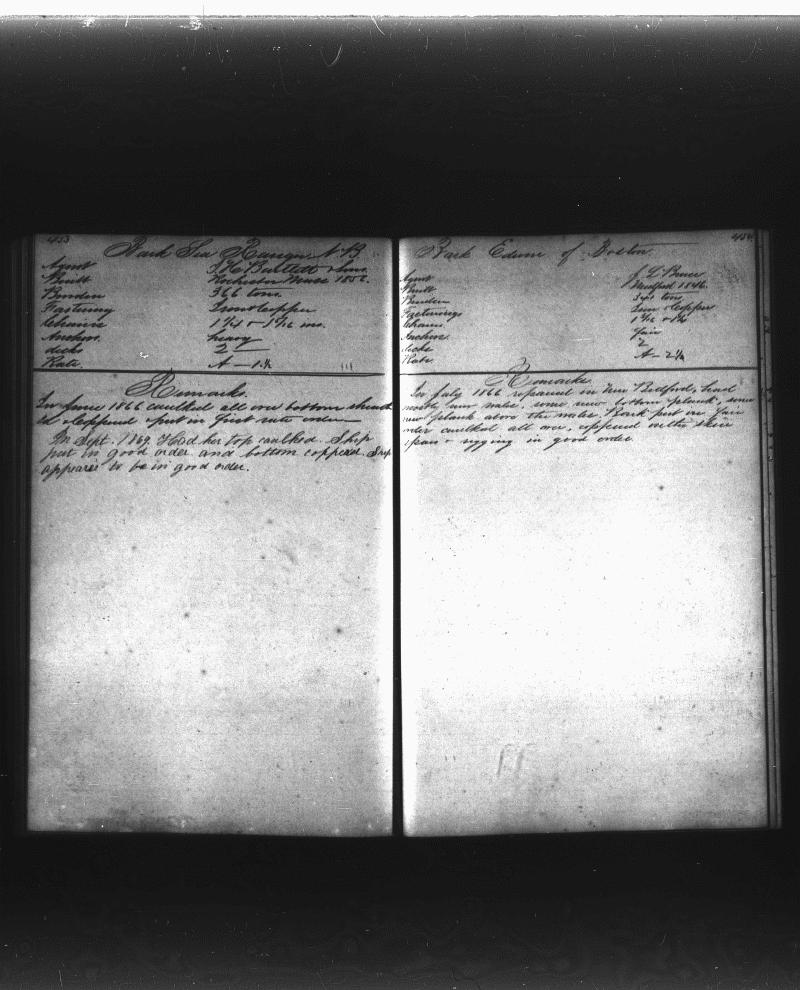 453
Bark Sea Ranger N.B.
Agent I. H. Bartlett & Sons
Built Rochester Mass 1852.
Burden 366 tons.
Fastening Iron & Copper
Chains ins.
Anchors heavy
decks 2
Rate A — 1½
Remarks.
In June 1866 caulked all over bottom sheath
ed & Coppered & put in first rate order
In Sept. 1869. Had her top caulked. Ship
put in good order and bottom coppered. Ship
appears to be in good order.
454
Bark Edwin of Boston.
Agent Bruce
Built Medford 1846.
Burden tons
Fastenings Iron & Copper
Chains
Anchors fair
decks 2
Rate A — 2½
Remarks
In July 1866 repaired in New Bedford, had
mostly new wales, some new bottom plank, some
new plank above the wales. Bark put in fair
order caulked all over, coppered
spars & rigging in good order.